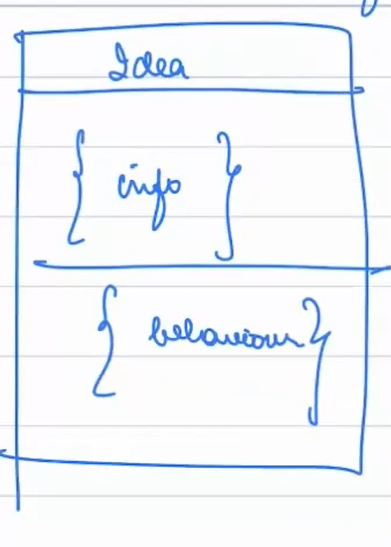 Idea
{ info }
{ behaviour }